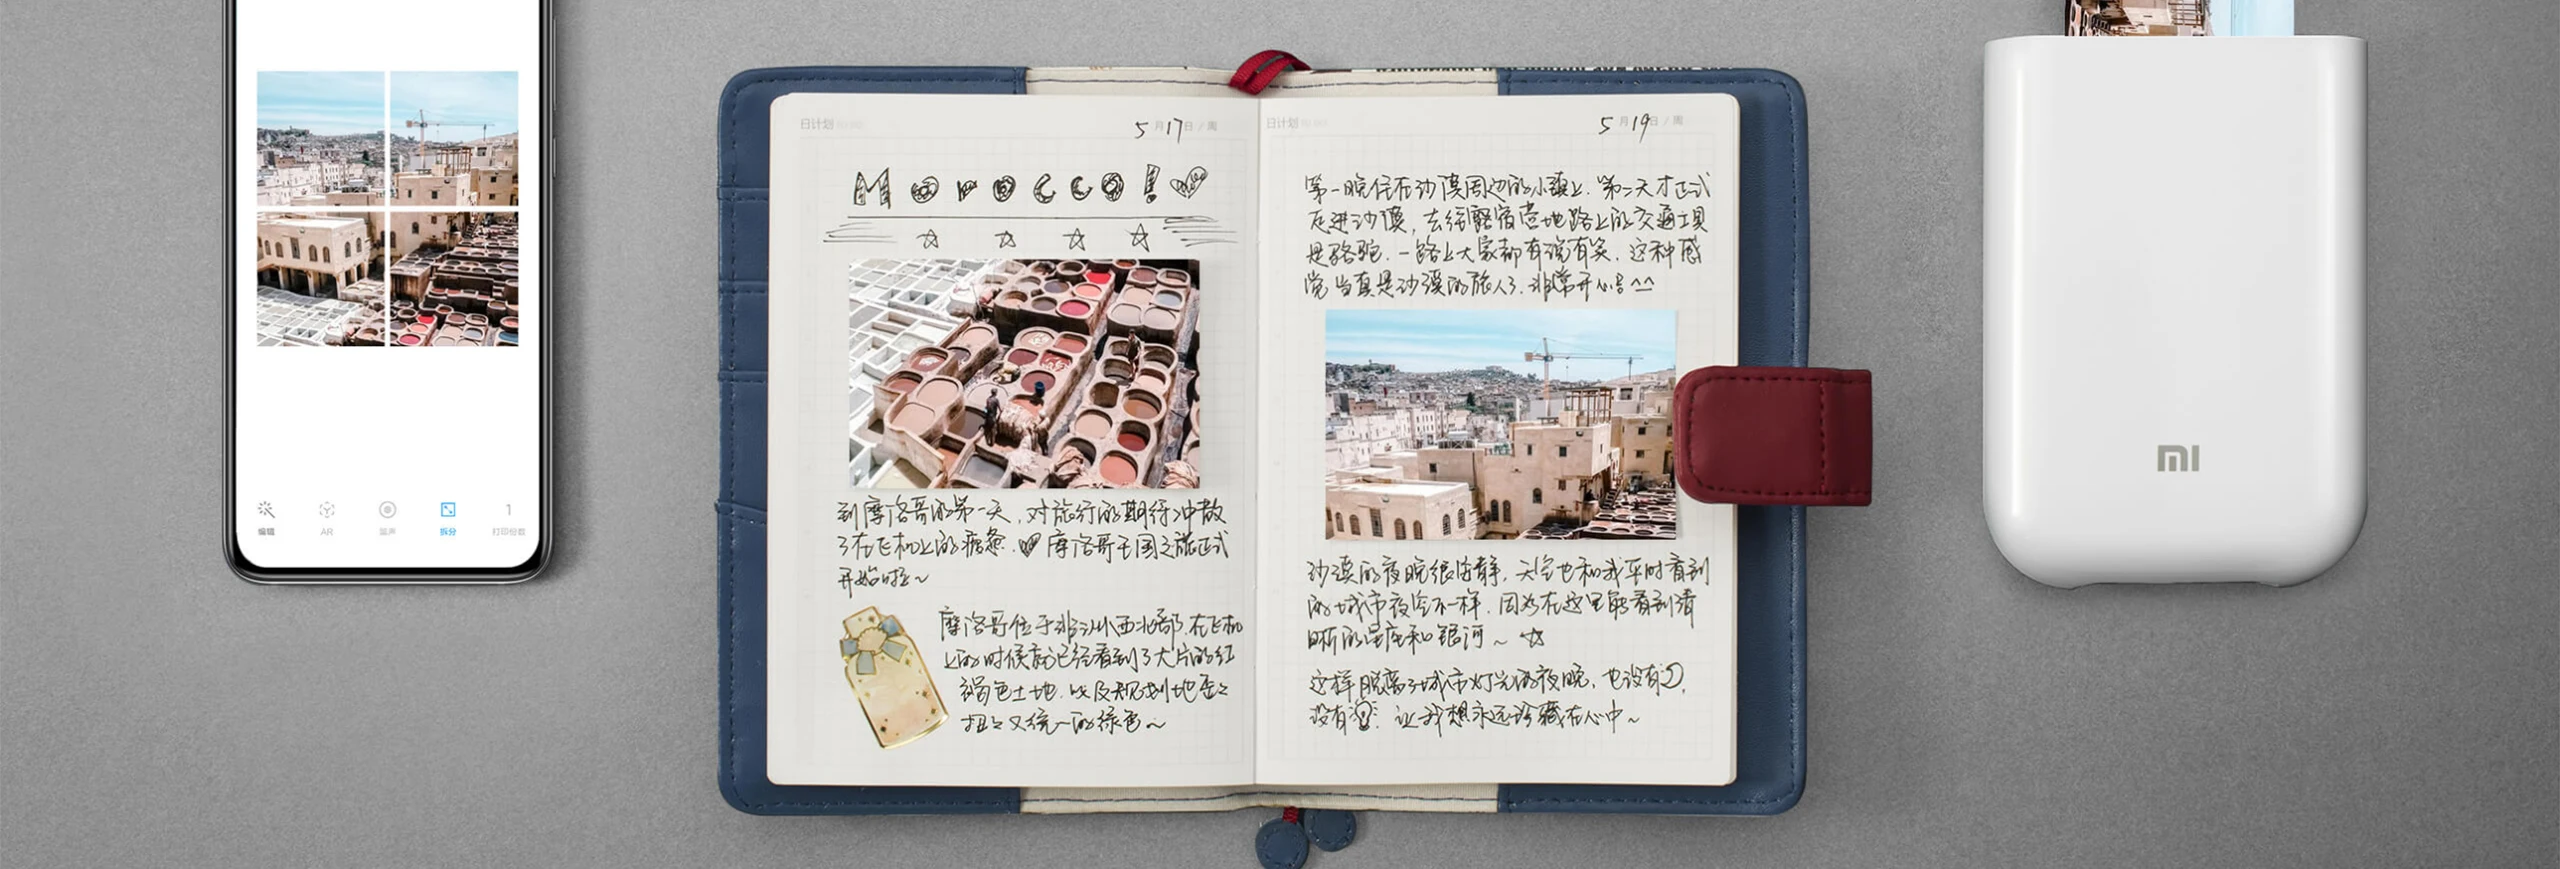 编辑
AR
留声
拆分
1
打印份数
日计划
5月17日/周
Morocco!
到摩洛哥的第一天,对旅行的期待冲散
了在飞机上的疲惫.摩洛哥王国之旅正式
开始啦~
摩洛哥位于非洲西北部,在飞机
上的时候就已经看到了大片的红
褐色土地,以及规划地歪歪
扭扭又统一的绿色~
日计划
5月19日/周
第一晚住在沙漠周边的小镇上.第二天才正式
走进沙漠,去往露宿营地路上的交通工具
是骆驼.一路上大家都有说有笑.这种感
觉当真是沙漠的旅人了.非常开心^^
沙漠的夜晚很安静,天空也和我平时看到
的城市夜空不一样.因为在这里能看到清
晰的星座和银河~
这样脱离了城市灯光的夜晚,也没有
没有 让我想永远珍藏在心中~
MI